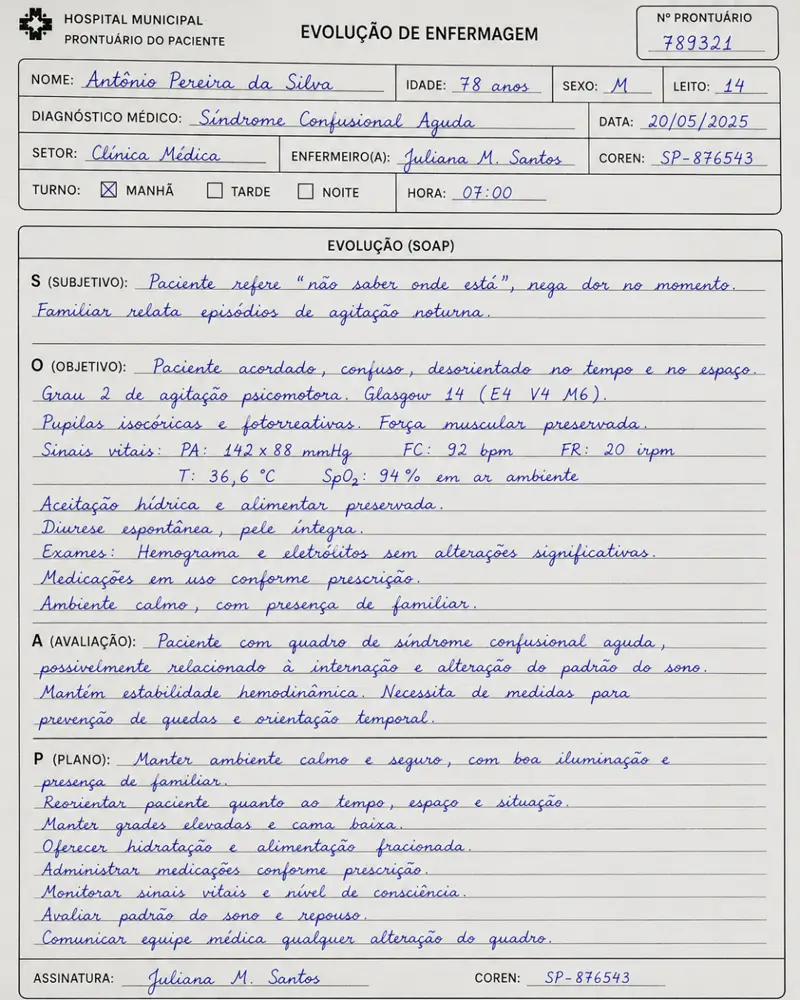 HOSPITAL MUNICIPAL
PRONTUÁRIO DO PACIENTE
EVOLUÇÃO DE ENFERMAGEM
Nº PRONTUÁRIO
789321
NOME: Antônio Pereira da Silva IDADE: 78 anos SEXO: M LEITO: 14
DIAGNÓSTICO MÉDICO: Síndrome Confusional Aguda DATA: 20/05/2025
SETOR: Clínica Médica ENFERMEIRO(A): Juliana M. Santos COREN: SP-876543
TURNO: ☒ MANHÃ ☐ TARDE ☐ NOITE HORA: 07:00
EVOLUÇÃO (SOAP)
S (SUBJETIVO): Paciente refere "não saber onde está", nega dor no momento.
Familiar relata episódios de agitação noturna.
O (OBJETIVO): Paciente acordado, confuso, desorientado no tempo e no espaço.
Grau 2 de agitação psicomotora. Glasgow 14 (E4 V4 M6).
Pupilas isocóricas e fotorreativas. Força muscular preservada.
Sinais vitais: PA: 142 x 88 mmHg FC: 92 bpm FR: 20 irpm
T: 36,6 °C SpO₂: 94% em ar ambiente
Aceitação hídrica e alimentar preservada.
Diurese espontânea, pele íntegra.
Exames: Hemograma e eletrólitos sem alterações significativas.
Medicações em uso conforme prescrição.
Ambiente calmo, com presença de familiar.
A (AVALIAÇÃO): Paciente com quadro de síndrome confusional aguda,
possivelmente relacionado à internação e alteração do padrão do sono.
Mantém estabilidade hemodinâmica. Necessita de medidas para
prevenção de quedas e orientação temporal.
P (PLANO): Manter ambiente calmo e seguro, com boa iluminação e
presença de familiar.
Reorientar paciente quanto ao tempo, espaço e situação.
Manter grades elevadas e cama baixa.
Oferecer hidratação e alimentação fracionada.
Administrar medicações conforme prescrição.
Monitorar sinais vitais e nível de consciência.
Avaliar padrão do sono e repouso.
Comunicar equipe médica qualquer alteração do quadro.
ASSINATURA: Juliana M. Santos COREN: SP-876543